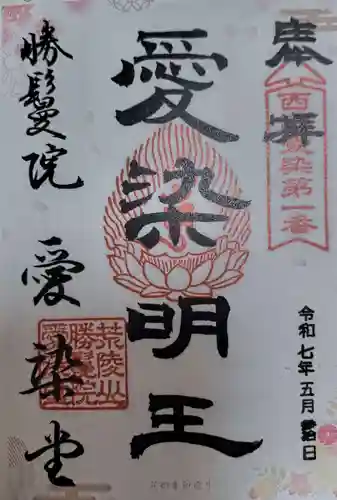 奉拝
西國愛染第一番
愛染明王
令和七年五月
日
勝鬘院
愛染堂
荒陵山
勝鬘院